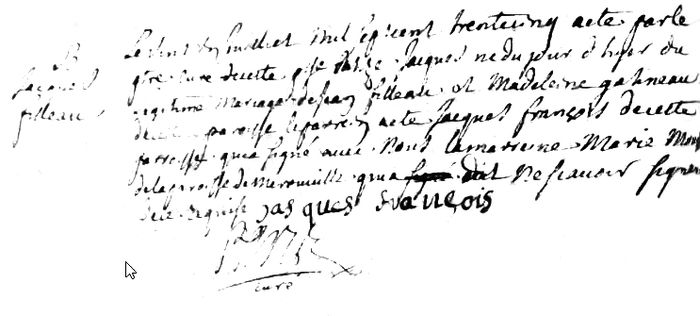 B
Jacques
filleau
Le vint de Juillet mil sept cent trente cinq a ete par le
cure de cette psse batise Jacques ne du jour d hier du
legitime mariage de Jean filleau et Madeleine gatineau
de cette paroisse le parrein a ete Jacques françois de cette
parroisse qui a signé avec Nous la marreine Marie
de la paroisse de merouville qui a signé dit Ne scavoir signer
de ce requise jasques franeois
curé